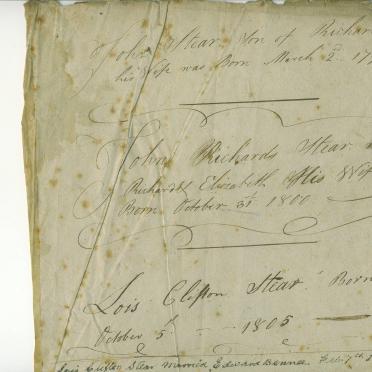 John Stear Son of Richard
his Wife was Born March 2d 17
John Richards Stear
Richard & Elizabeth His Wife
Born October 31st 1800
Lois Clifton Stear Born
October 5th 1805
Lois Clifton Stear Married Edward Bennee Feb 7th